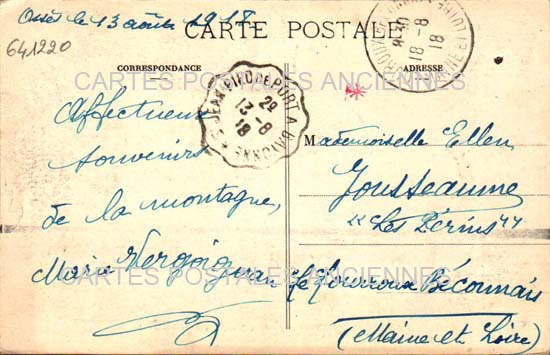 Ossès le 13 août 1918
641220
CARTE POSTALE
CORRESPONDANCE
ADRESSE
CARTES POSTALES ANCIENNES
ST JEAN-PIED-DE-PORT A BAYONNE
29
13-8
18
8 30
18-8
18
Affectueux
souvenirs
de la montagne,
Marie
Mademoiselle Ellen
Jousseaume
"Les Périns"
Le Louroux Béconnais
(Maine et Loire)
CARTES POSTALES ANCIENNES